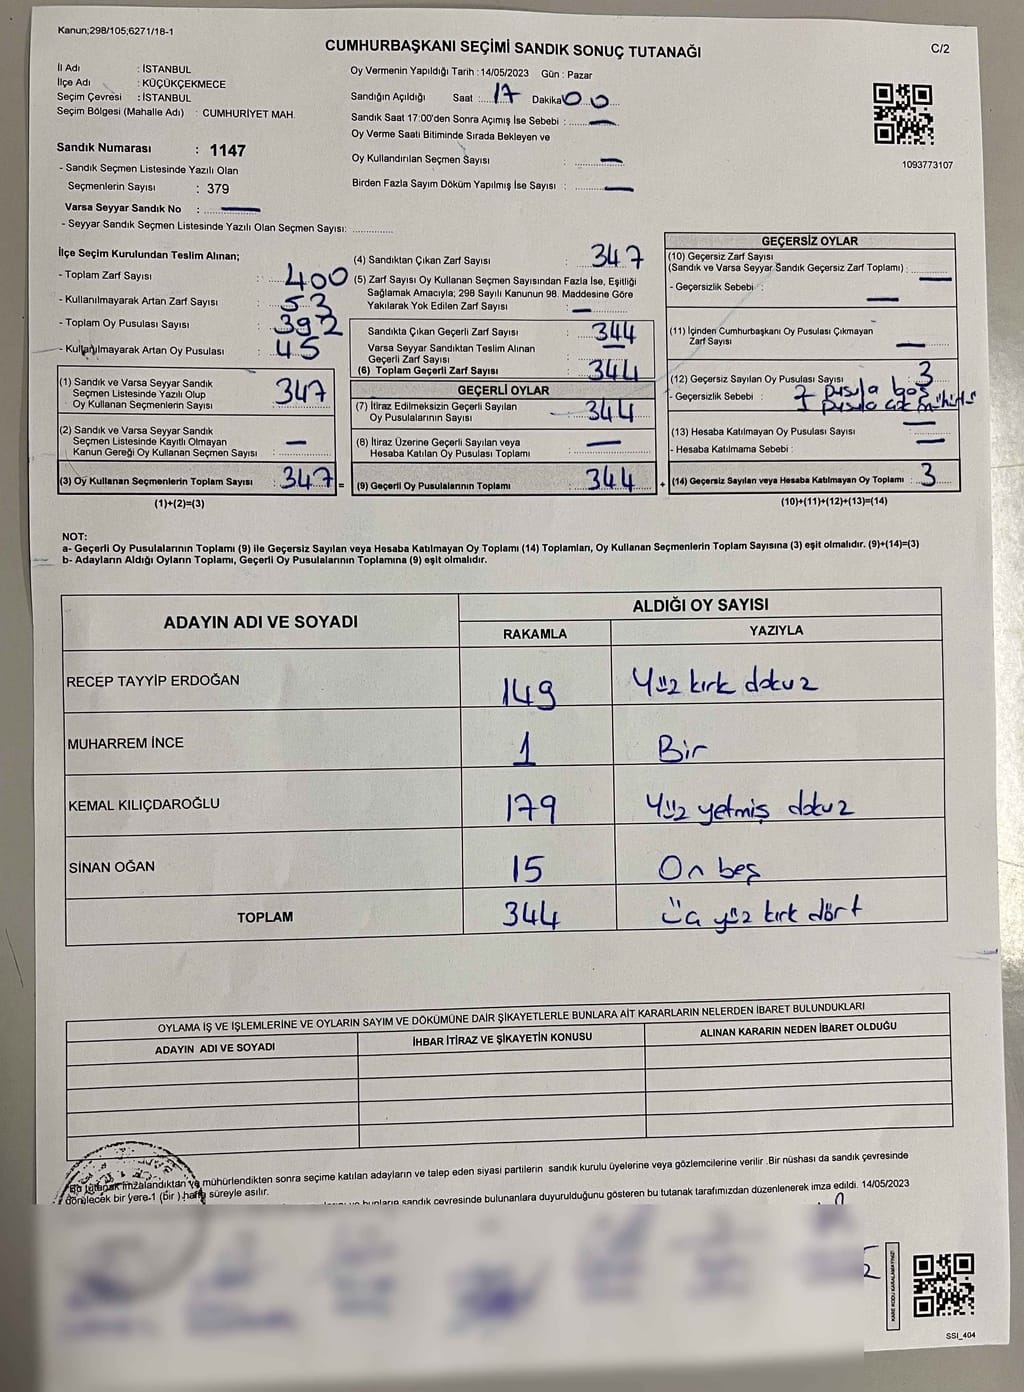 Kanun;298/105;6271/18-1
CUMHURBAŞKANI SEÇİMİ SANDIK SONUÇ TUTANAĞI
C/2
İl Adı : İSTANBUL
İlçe Adı : KÜÇÜKÇEKMECE
Seçim Çevresi : İSTANBUL
Seçim Bölgesi (Mahalle Adı) : CUMHURİYET MAH.
Sandık Numarası : 1147
- Sandık Seçmen Listesinde Yazılı Olan
Seçmenlerin Sayısı : 379
Varsa Seyyar Sandık No : —
- Seyyar Sandık Seçmen Listesinde Yazılı Olan Seçmen Sayısı:
Oy Vermenin Yapıldığı Tarih : 14/05/2023 Gün : Pazar
Sandığın Açıldığı Saat : 17 Dakika 00
Sandık Saat 17:00'den Sonra Açımış İse Sebebi : —
Oy Verme Saati Bitiminde Sırada Bekleyen ve
Oy Kullandırılan Seçmen Sayısı : —
Birden Fazla Sayım Döküm Yapılmış İse Sayısı : —
1093773107
İlçe Seçim Kurulundan Teslim Alınan;
- Toplam Zarf Sayısı : 400
- Kullanılmayarak Artan Zarf Sayısı : 53
- Toplam Oy Pusulası Sayısı : 392
- Kullanılmayarak Artan Oy Pusulası : 45
(1) Sandık ve Varsa Seyyar Sandık
Seçmen Listesinde Yazılı Olup
Oy Kullanan Seçmenlerin Sayısı : 347
(2) Sandık ve Varsa Seyyar Sandık
Seçmen Listesinde Kayıtlı Olmayan
Kanun Gereği Oy Kullanan Seçmen Sayısı : —
(3) Oy Kullanan Seçmenlerin Toplam Sayısı : 347 =
(1)+(2)=(3)
(4) Sandıktan Çıkan Zarf Sayısı : 347
(5) Zarf Sayısı Oy Kullanan Seçmen Sayısından Fazla İse, Eşitliği
Sağlamak Amacıyla; 298 Sayılı Kanunun 98. Maddesine Göre
Yakılarak Yok Edilen Zarf Sayısı : —
Sandıkta Çıkan Geçerli Zarf Sayısı : 344
Varsa Seyyar Sandıktan Teslim Alınan
Geçerli Zarf Sayısı : —
(6) Toplam Geçerli Zarf Sayısı : 344
GEÇERLİ OYLAR
(7) İtiraz Edilmeksizin Geçerli Sayılan
Oy Pusulalarının Sayısı : 344
(8) İtiraz Üzerine Geçerli Sayılan veya
Hesaba Katılan Oy Pusulası Toplamı : —
(9) Geçerli Oy Pusulalarının Toplamı : 344 +
GEÇERSİZ OYLAR
(10) Geçersiz Zarf Sayısı
(Sandık ve Varsa Seyyar Sandık Geçersiz Zarf Toplamı) : —
- Geçersizlik Sebebi : —
(11) İçinden Cumhurbaşkanı Oy Pusulası Çıkmayan
Zarf Sayısı : —
(12) Geçersiz Sayılan Oy Pusulası Sayısı : 3
- Geçersizlik Sebebi : pusula boş
pusula
(13) Hesaba Katılmayan Oy Pusulası Sayısı : —
- Hesaba Katılmama Sebebi : —
(14) Geçersiz Sayılan veya Hesaba Katılmayan Oy Toplamı : 3
(10)+(11)+(12)+(13)=(14)
NOT:
a- Geçerli Oy Pusulalarının Toplamı (9) ile Geçersiz Sayılan veya Hesaba Katılmayan Oy Toplamı (14) Toplamları, Oy Kullanan Seçmenlerin Toplam Sayısına (3) eşit olmalıdır. (9)+(14)=(3)
b- Adayların Aldığı Oyların Toplamı, Geçerli Oy Pusulalarının Toplamına (9) eşit olmalıdır.
ADAYIN ADI VE SOYADI
ALDIĞI OY SAYISI
RAKAMLA YAZIYLA
RECEP TAYYİP ERDOĞAN 149 Yüz kırk dokuz
MUHARREM İNCE 1 Bir
KEMAL KILIÇDAROĞLU 179 Yüz yetmiş dokuz
SİNAN OĞAN 15 On beş
TOPLAM 344 üç yüz kırk dört
OYLAMA İŞ VE İŞLEMLERİNE VE OYLARIN SAYIM VE DÖKÜMÜNE DAİR ŞİKAYETLERLE BUNLARA AİT KARARLARIN NELERDEN İBARET BULUNDUKLARI
ADAYIN ADI VE SOYADI İHBAR İTİRAZ VE ŞİKAYETİN KONUSU ALINAN KARARIN NEDEN İBARET OLDUĞU
Bu tutanak imzalandıktan ve mühürlendikten sonra seçime katılan adayların ve talep eden siyasi partilerin sandık kurulu üyelerine veya gözlemcilerine verilir .Bir nüshası da sandık çevresinde
görülecek bir yere 1 (bir ) hafta süreyle asılır.
bunların sandık çevresinde bulunanlara duyurulduğunu gösteren bu tutanak tarafımızdan düzenlenerek imza edildi. 14/05/2023
KARE KODU KARALAMAYINIZ!
SSI_404